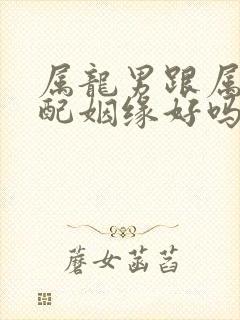 属龍男跟属
配姻缘好吗
蘑女菡萏